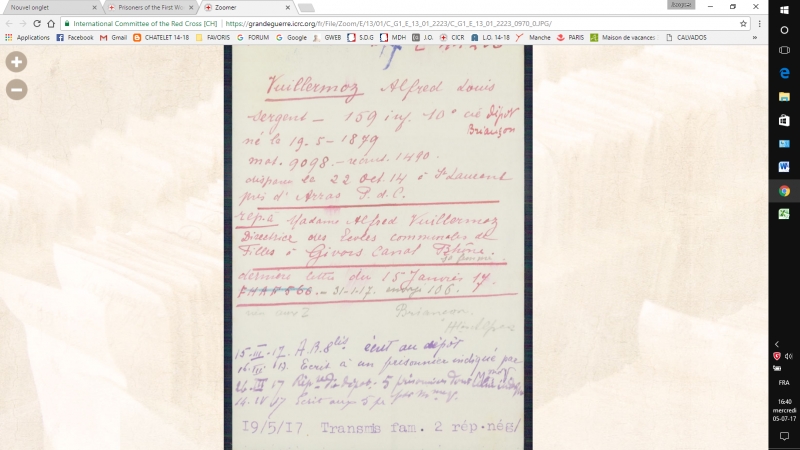 Nouvel onglet
Prisoners of the First Wor
Zoomer
International Committee of the Red Cross [CH] https://grandeguerre.icrc.org/fr/File/Zoom/E/13/01/C_G1_E_13_01_2223/C_G1_E_13_01_2223_0970_0.JPG/
Applications Facebook Gmail CHATELET 14-18 FAVORIS G FORUM Google GWEB S.G.D MDH J.O. CICR L.O. 14-18 Manche PARIS Maison de vacances CALVADOS
Vuillermoz Alfred Louis
Sergent – 159 inf. 10e cie dépôt
Briançon
né le 19.5-1879
mat. 9098.- recrut. 1490.
disparu le 22 Oct. 14 à St Laurent
près d'Arras P.d.C.
rép.à Madame Alfred Vuillermoz
Directrice des Ecoles communales de
Filles à Givors Canal Rhône.
sa femme.
dernière lettre du 15 Janvier 17.
31-1-17. 106.
Briançon
15-III-17. écrit au dépôt
Ecrit à un prisonnier indiqué par
5 prisonniers dont
Ecrit aux 5 pr
19/5/17. Transmis fam. 2 rép.nég/
FRA
16:40
mercredi
05-07-17